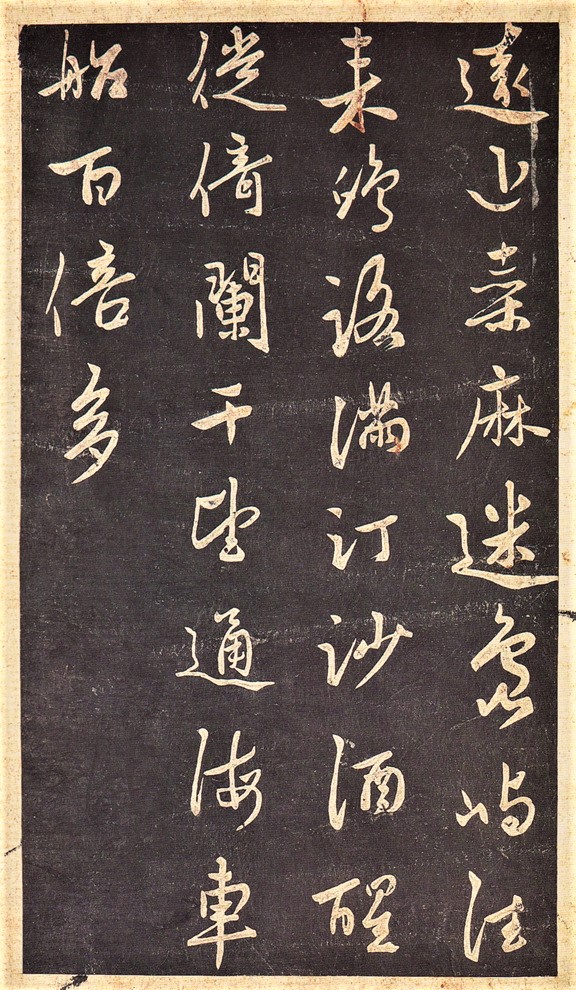 遠近桑麻迷島嶼往
来滿汀沙酒醒
徙倚闌干望通海車
船百倍多